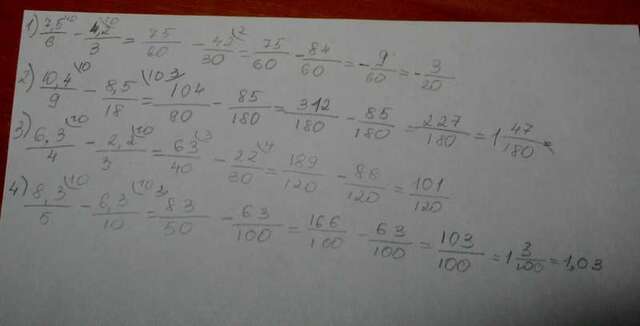 1) 7,5\10/6 - 4,2\10/3 = 75/60 - 42\2/30 = 75/60 - 84/60 = - 9/60 = - 3/20
2) 10,4\10/9 - 8,5\10/18 = 104\2/90 - 85/180 = 312/180 - 85/180 = 227/180 = 1 47/180
3) 6,3\10/4 - 2,2\10/3 = 63\3/40 - 22\4/30 = 189/120 - 88/120 = 101/120
4) 8,3\10/5 - 6,3\10/10 = 83\2/50 - 63/100 = 166/100 - 63/100 = 103/100 = 1 3/100 = 1,03